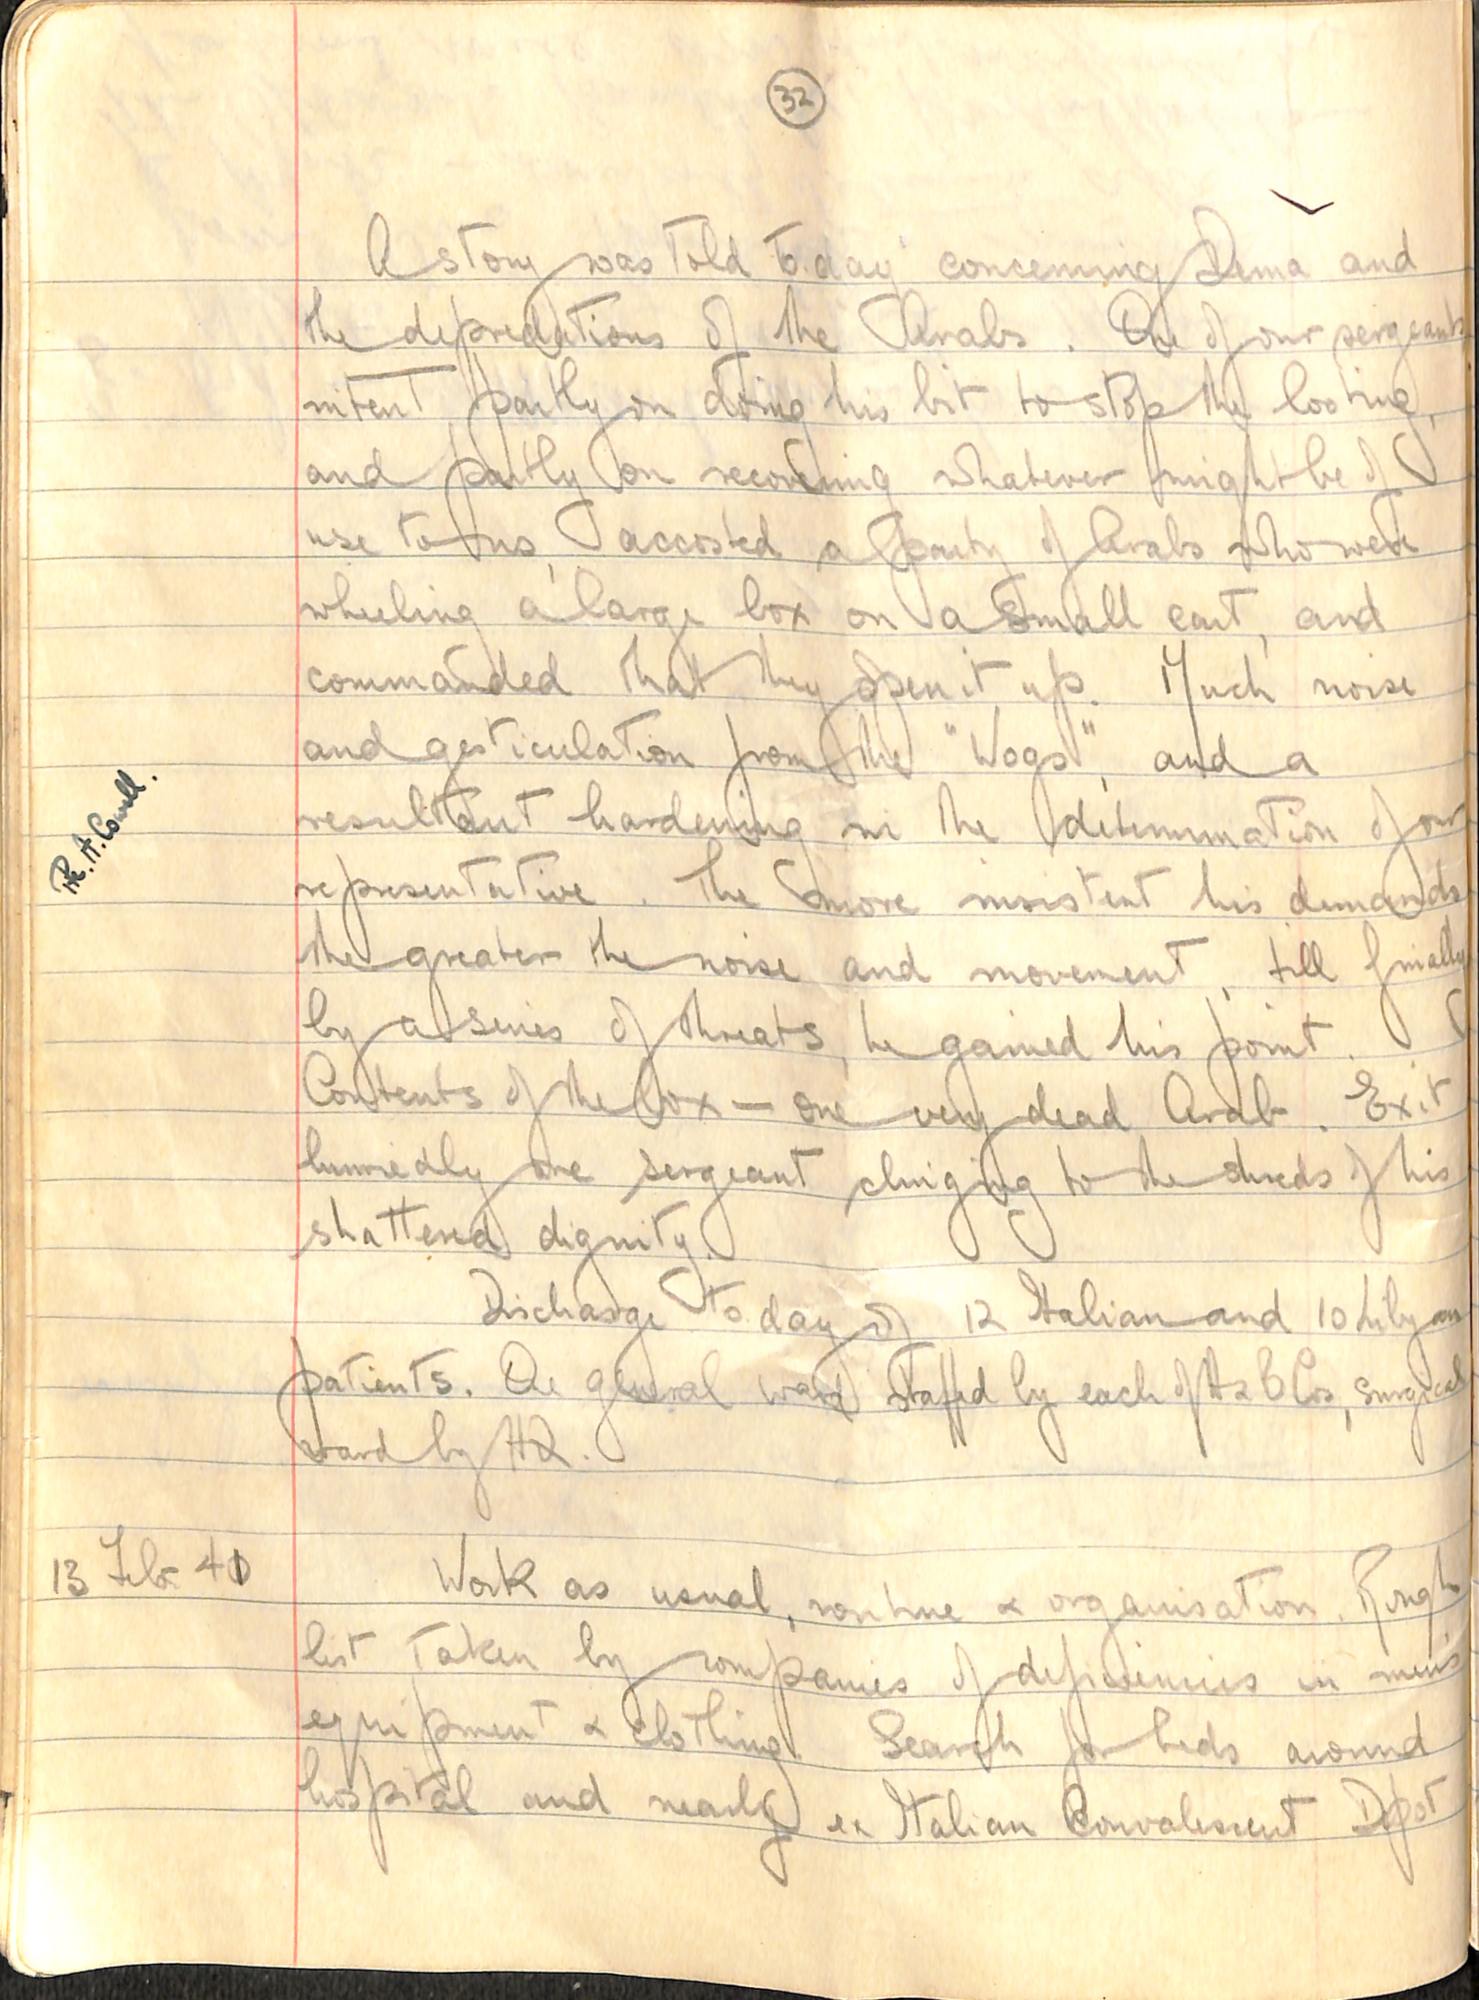 32
A story was told to.day concerning Derna and
the depredations of the Arabs. One of our sergeants
intent partly on doing his bit to stop the looting,
and partly on recovering whatever might be of
use to us, accosted a party of Arabs who were
wheeling a large box on a small cart, and
commanded that they open it up. Much noise
and gesticulation from the "Wogs", and a
resultant hardening in the determination of our
representative. The more insistent his demands
the greater the noise and movement, till finally
by a series of threats, he gained his point.
Contents of the box — one very dead Arab. Exit
hurriedly one sergeant clinging to the shreds of his
shattered dignity.
Discharge to.day of 12 Italian and 10 Libyan
patients. One general ward staffed by each of A & B Cos, surgical
ward by HQ.
13 Feb 41
Work as usual, routine & organisation. Rough
list taken by companies of deficiencies in men's
equipment & clothing. Search for beds around
hospital and nearby ex Italian Convalescent Depot